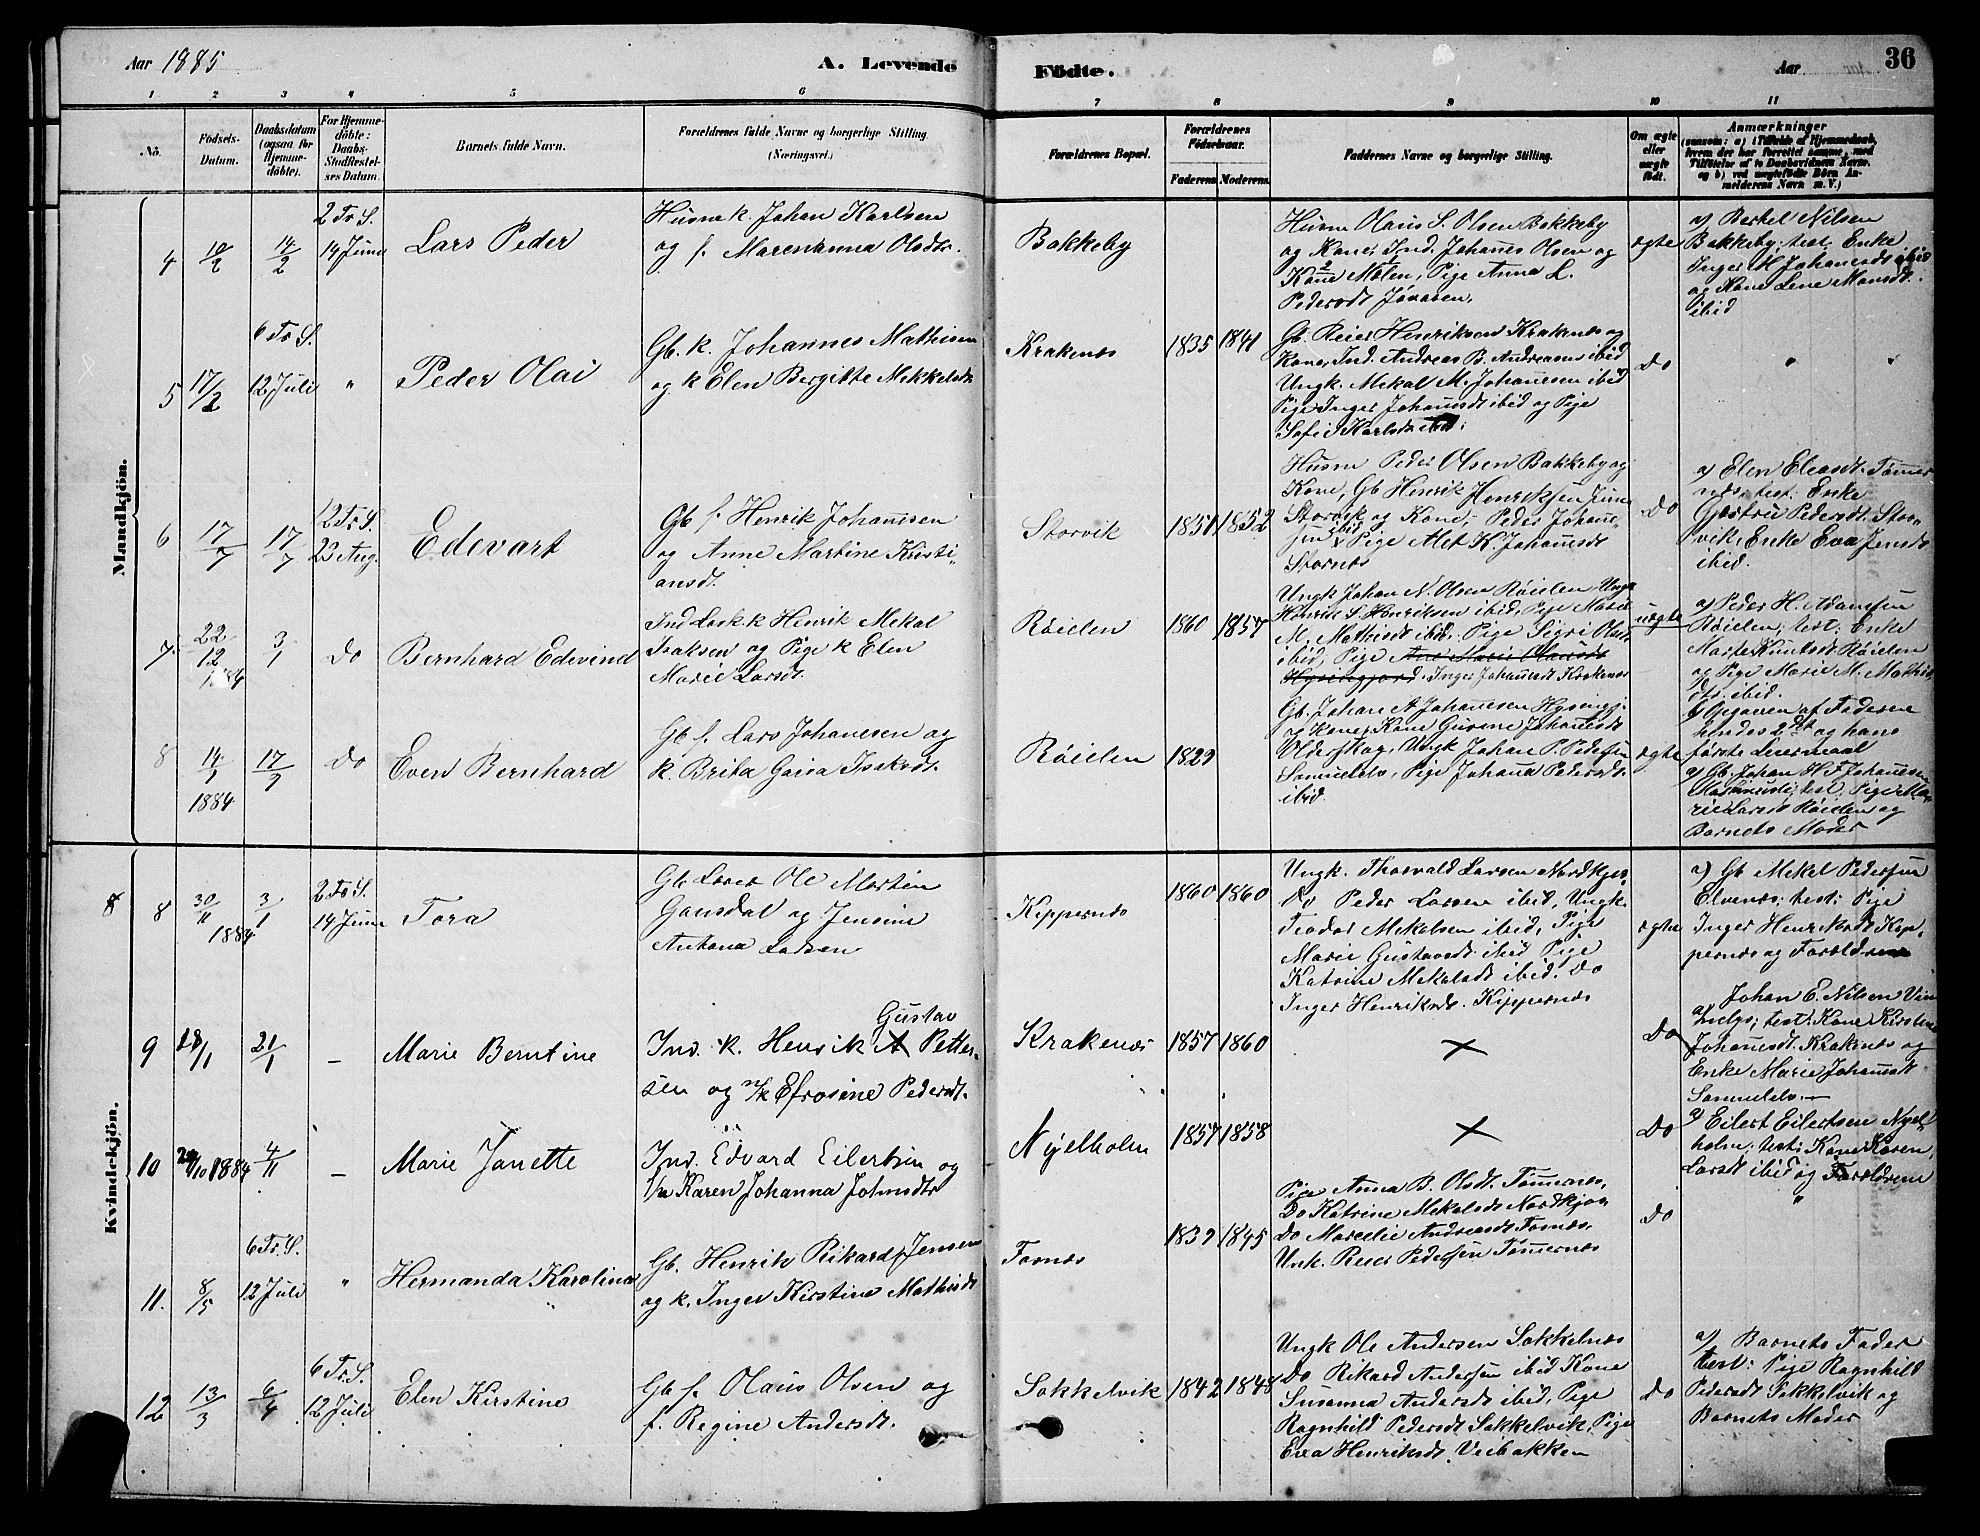 Aar 1885
A. Levende
Födte.
Aar
36
1 2 3 4 5 6 7 8 9 10 11
No.
Fødsels-Datum.
Daabsdatum (ogsaa for Hjemmedöbte).
For Hjemmedöbte: Daabs-Stadfæstelses Datum.
Barnets fulde Navn.
Forældrenes fulde Navne og borgerlige Stilling (Næringsvei.)
Forældrenes Bopæl.
Forældrenes Födselsaar.
Faderens Moderens
Faddernes Navne og borgerlige Stilling.
Om ægte eller uægte födt.
Anmærkninger
Mandkjön.
4
10/2
14/2
2 Tr S.
14 Juni
Lars Peder
Husm k. Johan Karlsen
og f. Marenanna Olsdtr.
Bakkeby
Husm Olaus S. Olsen Bakkeby
og Kone, Ind. Johannes Olsen og
Kone Molen, Pige Anna L.
Pedersdt
ægte
a) Berhel Nilsen
Bakkeby; test. Enke
Inger M Johansdt ibid
og Kone Lene Monsdt.
ibid
5
17/2
6 Tr S.
12 Juli
"
Peder Olai
Gb. k. Johannes Mathisen
og k Elen Bergitte Mekkelsdt
Krakenæs
1835
1841
Gb. Reier Henriksen Krakenæs og
Kone, Ind. Andreas B. Andreasen ibid
Ungk. Mekal M. Johanesen ibid
Pige Inger Johanesdt ibid og Pige
Sofie Karlsdt ibid.
Do
"
"
6
17/7
17/7
12 Tr S.
23 Aug.
Edevart
Gb f. Henrik Johannesen
og Anne Martine Kristi-
ansdt.
Storvik
1851
1852
Husm Peder Olsen Bakkeby og
Kone, Gb Henrik Henriksen
Storvik og Kone, Peder Johane-
sen ibid, Pige Met K. Johanesdt
Stornæs
Do
a) Elen Eleasdt. Tømer-
næs; test. Enke
Gjertru Pedersdt. Stor-
vik, Enke Eva Jensdt
ibid.
7.
22/12 1884
3/1
Do
Bernhard Edevind
Ind Lask k Henrik Mekal
Isaksen og Pige k Elen
Marie Larsdt.
Røielen
1860
1857
Ungk Johan N. Olsen Røielen Ungk
Henrik S Henriksen ibid, Pige Marie
M. Mathisdt ibid. Pige Sigri Olsdt
ibid, Pige Ane Marie Olausdt
Hysengjord. Inger Johanesdt Krakenæs
uægte
a) Peder H. Adamsen
Røielen; test: Enke
Marte Knutsdt Røielen
og Pige Marie M. Mathis-
dtr. ibid.
b) Opgaven af Faderen
hendes 2det og hans
første Leiermaal
8
14/1 1884
17/2
Do
Even Bernhard
Gb f. Lars Johanesen og
k. Brita Gaisa Isaksdt.
Røielen
1829
Gb. Johan A Johanesen Hysingj.
og Kone, Kone Gurine Johanesdt
Olderskog, Ungk Johan P. Pedersen
Samuelelv, Pige Johana Pedersdt.
ibid.
ægte
a) Gb. Johan H F Johanesen
test: Pige Ma-
rie Larsdt Røielen og
Barnets Moder
Kvindekjön.
8
8
30/11 1884
3/1
2 Tr S.
14 Juni
Tora
Gb Lars Ole Martin
Gausdal og Jensine
Antona Larsen
Kippernæs
1860
1860
Ungk. Thorvald Larsen Nordkjos
Do Peder Larsen ibid, Ungk.
Teodor Mekalsen ibid, Pige
Marie Gustavsdt. ibid Pige
Katrine Mekalsdt ibid. Do
Inger Henriksdt. Kippernæs
ægte
a) Gb Mekel Pedersen
Elvenæs; test: Pige
Inger Henriksdt Kip-
pernæs og Forældrene
9
18/1
21/1
–
Marie Berntine
Gustav
Ind. k. Henrik A Petter-
sen og n/k Efrosine Pedersdt.
Krakenæs
1857
1860
×
Do
a) Johan E. Nilsen
test: Kone Kirstine
Johanesdt. Krakenæs og
Enke Marie Johanesdt
Samuelelv.
10
/10 1884
4/11
–
Marie Janette
Ind. Edvard Eilertsen og
Karen Johanna Johnsdtr
Njelholm
1857
1858
×
Do
a) Eilert Eilertsen Njel-
holm; test: Kone Karen
Larsdt ibid og Forældrene
11.
8/5
6 Tr. S.
12 Juli
"
Hermanda Karolina
Gb. Henrik Rikard Jensen
og k. Inger Kirstine Mathisdt
Tornæs
1839
1845
Pige Anna B. Olsdt. Tømernes,
Do Katrine Mekalsdt Nordkjos
Do Marselie Andreasdt Tornæs.
Unk. Reier Pedersen Tømmernæs
Do
"
12
13/3
6/4
6 Tr. S.
12 Juli
Elen Kirstine
Gb f. Olaus Olsen og
f. Regine Andersdt.
Sokkelvik
1842
1848
Ungk Ole Andersen Sokkelnæs
Do Rikard Andersen ibid Kone
Susanna Andersdt ibid, Pige
Ragnhild Pedersdt Sokkelvik, Pige
Eva Henriksdt. Veibakken
Do
a) Barnets Fader
test: Pige Ragnhild
Pedersdt Sokkelvik og
Barnets Moder